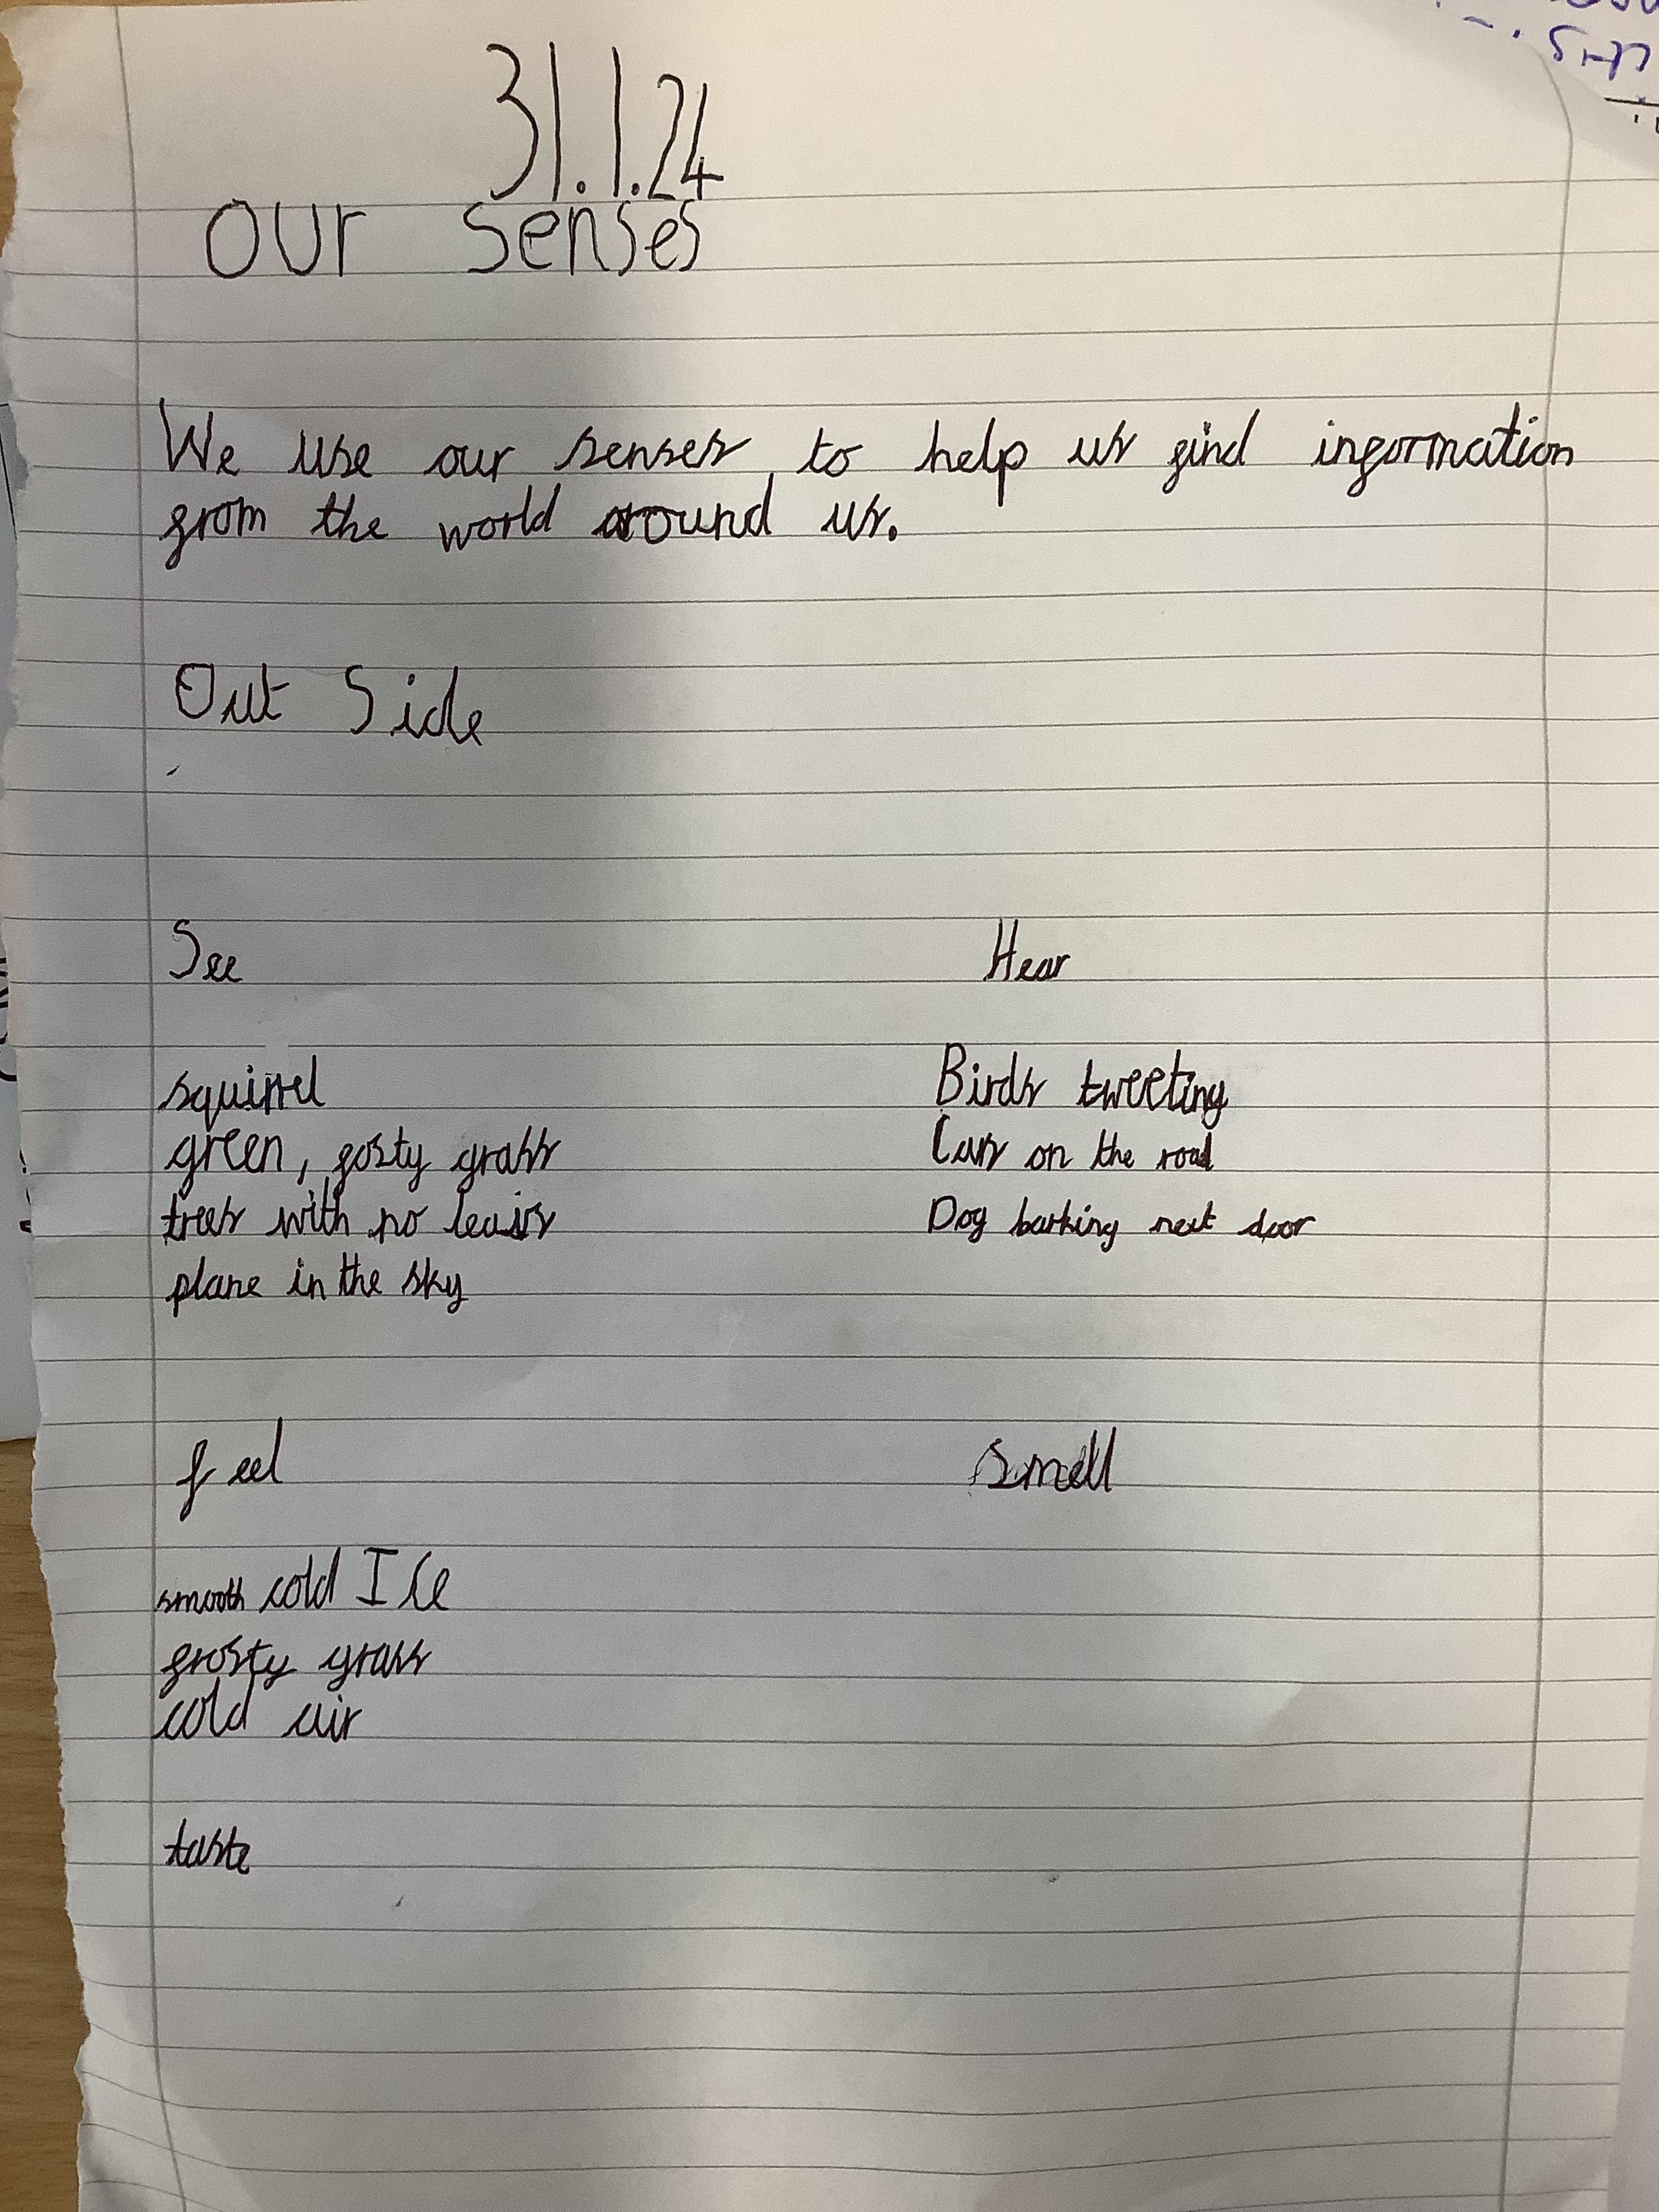 31.1.24
our senses
We use our senses to help us find information
from the world around us.
Out Side
See
Hear
squirrel
green, fosty grass
trees with no leaivs
plane in the sky
Birds tweeting
Cars on the road
Dog barking next door
feel
Smell
smooth cold Ice
frosty grass
cold air
taste